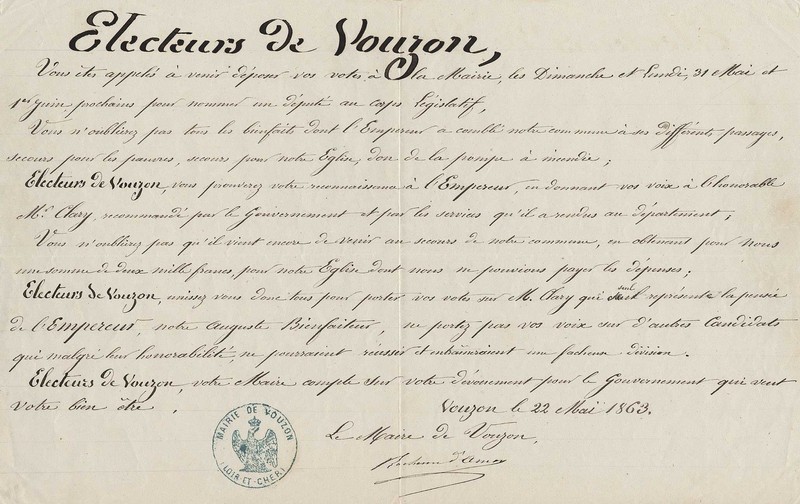 Electeurs de Vouzon,
Vous êtes appelés à venir déposer vos votes, à la Mairie, les Dimanche et Lundi, 31 Mai et
1er Juin prochains pour nommer un député au corps législatif,
Vous n'oublirez pas tous les bienfaits dont l'Empereur a comblé notre commune à ses différents passages,
secours pour les pauvres, secours pour notre Eglise, don de la pompe à incendie ;
Electeurs de Vouzon, vous prouverez votre reconnaissance à l'Empereur, en donnant vos voix à l'honorable
Mr. Clary, recommandé par le Gouvernement et par les services qu'il a rendus au département ;
Vous n'oublirez pas qu'il vient encore de venir au secours de notre commune, en obtenant pour nous
une somme de deux mille francs, pour notre Eglise dont nous ne pouvions payer les dépenses ;
Electeurs de Vouzon, unissez vous donc tous pour porter vos votes sur M. Clary qui seul représente la pensée
de l'Empereur, notre Auguste Bienfaiteur, ne portez pas vos voix sur d'autres Candidats
qui malgré leur honorabilité, ne pourraient réussir et entraineraient une facheuse division.
Electeurs de Vouzon, votre Maire compte sur votre dévouement pour le Gouvernement qui veut
votre bien être.
Vouzon le 22 Mai 1863.
Le Maire de Vouzon,
MAIRIE DE VOUZON
(LOIR-ET-CHER)